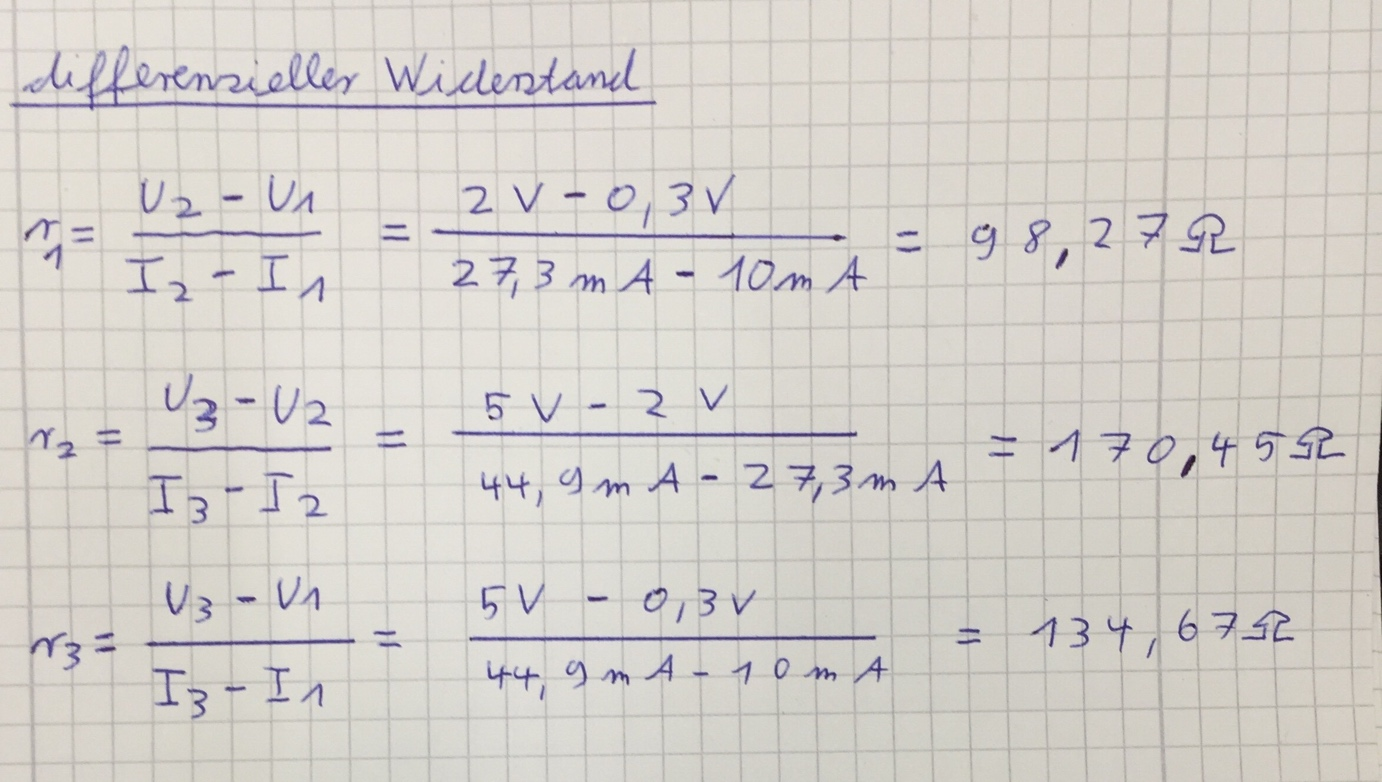 differenzieller Widerstand
r₁ = (U₂ - U₁)/(I₂ - I₁) = (2 V - 0,3 V)/(27,3 mA - 10 mA) = 98,27 Ω
r₂ = (U₃ - U₂)/(I₃ - I₂) = (5 V - 2 V)/(44,9 mA - 27,3 mA) = 170,45 Ω
r₃ = (U₃ - U₁)/(I₃ - I₁) = (5 V - 0,3 V)/(44,9 mA - 10 mA) = 134,67 Ω